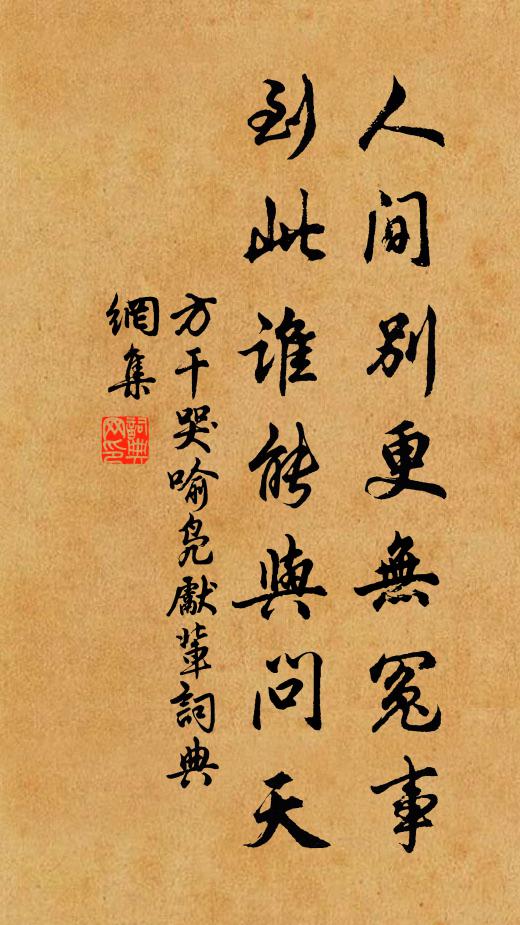 人間別更無冤事
到此誰能與問天
方干哭喻鳧獻輩詞典
網集
詞典
网印